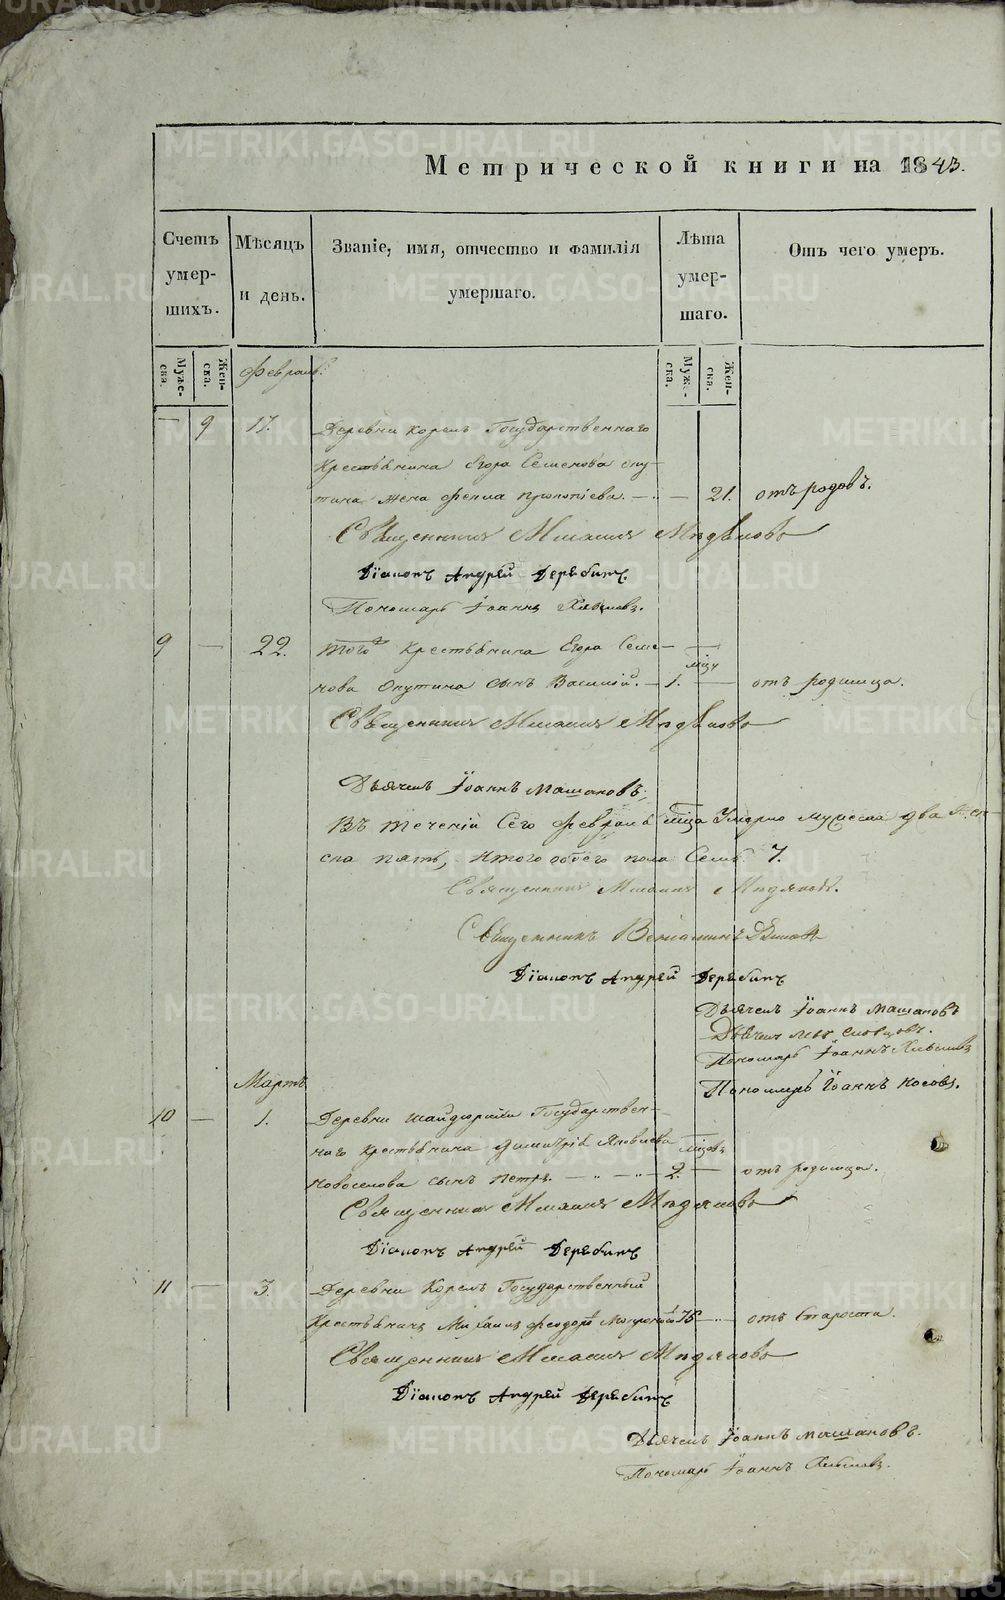 Метрической книги на 1843.
Счетъ умер- шихъ.
Мѣсяцъ и день.
Званіе, имя, отчество и фамилія умершаго.
Лѣта умер- шаго.
Отъ чего умеръ.
Муже- ска.
Жен- ска.
Муже- ска.
Жен- ска.
Февраль.
9 17. Деревни Корелъ Государственнаго
Крестьянина Егора Семенова Опу-
тина жена Фекла Прокопіева. 21. отъ родовъ.
Священникъ Михаилъ
Діаконъ Андрей Дерябинъ
Пономарь Іоаннъ
9 — 22. того крестьянина Егора Семе-
нова Опутина сынъ Василій. 1. мцъ отъ родимца.
Священникъ Михаилъ
Дьячекъ Іоаннъ Машановъ.
Въ теченіи сего Февраля мца умерло мужеска два жен-
ска пять, итого обоего пола семь 7.
Священникъ Михаилъ
Священникъ Веніаминъ
Діаконъ Андрей Дерябинъ
Дьячекъ Іоаннъ Машановъ
Дьячекъ Словцовъ.
Пономарь Іоаннъ
Пономарь Іоаннъ Носовъ.
Мартъ.
10 — 1. Деревни Шайдурихи Государствен-
наго крестьянина Димитрія Яковлева
Новоселова сынъ Петръ. 2. мцовъ отъ родимца.
Священникъ Михаилъ
Діаконъ Андрей Дерябинъ
11 — 3. Деревни Корелъ Государственный
Крестьянинъ Михаилъ Феодоровъ 76 отъ старости.
Священникъ Михаилъ
Діаконъ Андрей Дерябинъ
Дьячекъ Іоаннъ Машановъ.
Пономарь Іоаннъ
METRIKI.GASO-URAL.RU